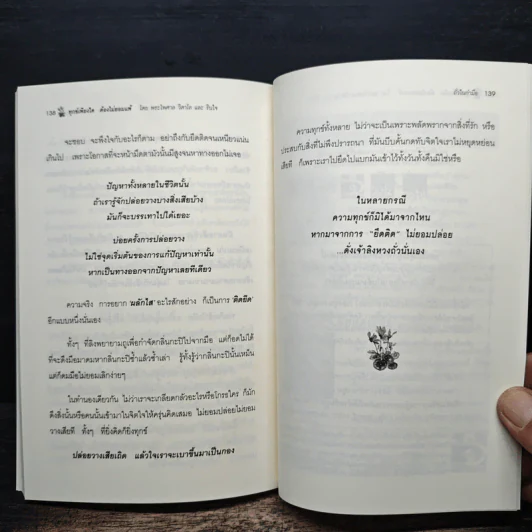 138 ทุกข์เพียงใด ต้องไม่ยอมแพ้ โดย พระไพศาล วิสาโล และ รินใจ
จะชอบ จะพึงใจกับอะไรก็ตาม อย่าถึงกับยึดติดจนเหนียวแน่น
เกินไป เพราะโอกาสที่จะหน้ามืดตามัวนั้นมีสูงจนหาทางออกไม่เจอ
ปัญหาทั้งหลายในชีวิตนั้น
ถ้าเรารู้จักปล่อยวางบางสิ่งเสียบ้าง
มันก็จะบรรเทาไปได้เยอะ
บ่อยครั้งการปล่อยวาง
ไม่ใช่จุดเริ่มต้นของการแก้ปัญหาเท่านั้น
หากเป็นทางออกจากปัญหาเลยทีเดียว
ความจริง การอยาก 'ผลักไส' อะไรสักอย่าง ก็เป็นการ 'ติดยึด'
อีกแบบหนึ่งนั่นเอง
ทั้งๆ ที่ลิงพยายามถูเพื่อกำจัดกลิ่นกะปิไปจากมือ แต่ก็อดไม่ได้
ที่จะดึงมือมาดมหากลิ่นกะปิซ้ำแล้วซ้ำเล่า รู้ทั้งรู้ว่ากลิ่นกะปินั้นเหม็น
แต่ก็ดมมือไม่ยอมเลิกง่ายๆ
ในทำนองเดียวกัน ไม่ว่าเราจะเกลียดกลัวอะไรหรือโกรธใคร ก็มัก
ดึงสิ่งนั้นหรือคนนั้นเข้ามาในจิตใจให้ครุ่นคิดเสมอ ไม่ยอมปล่อยไม่ยอม
วางเสียที ทั้งๆ ที่ยิ่งคิดก็ยิ่งทุกข์
ปล่อยวางเสียเถิด แล้วใจเราจะเบาขึ้นมาเป็นกอง
139
ความทุกข์ทั้งหลาย ไม่ว่าจะเป็นเพราะพลัดพรากจากสิ่งที่รัก หรือ
ประสบกับสิ่งที่ไม่พึงปรารถนา ที่มันบีบคั้นกดทับจิตใจเราไม่หยุดหย่อน
เสียที ก็เพราะเราไปยึดไปแบกมันเข้าไว้ทั้งวันทั้งคืนมิใช่หรือ
ในหลายกรณี
ความทุกข์ก็มิได้มาจากไหน
หากมาจากการ "ยึดติด" ไม่ยอมปล่อย
...ดั่งเจ้าลิงหวงถั่วนั่นเอง